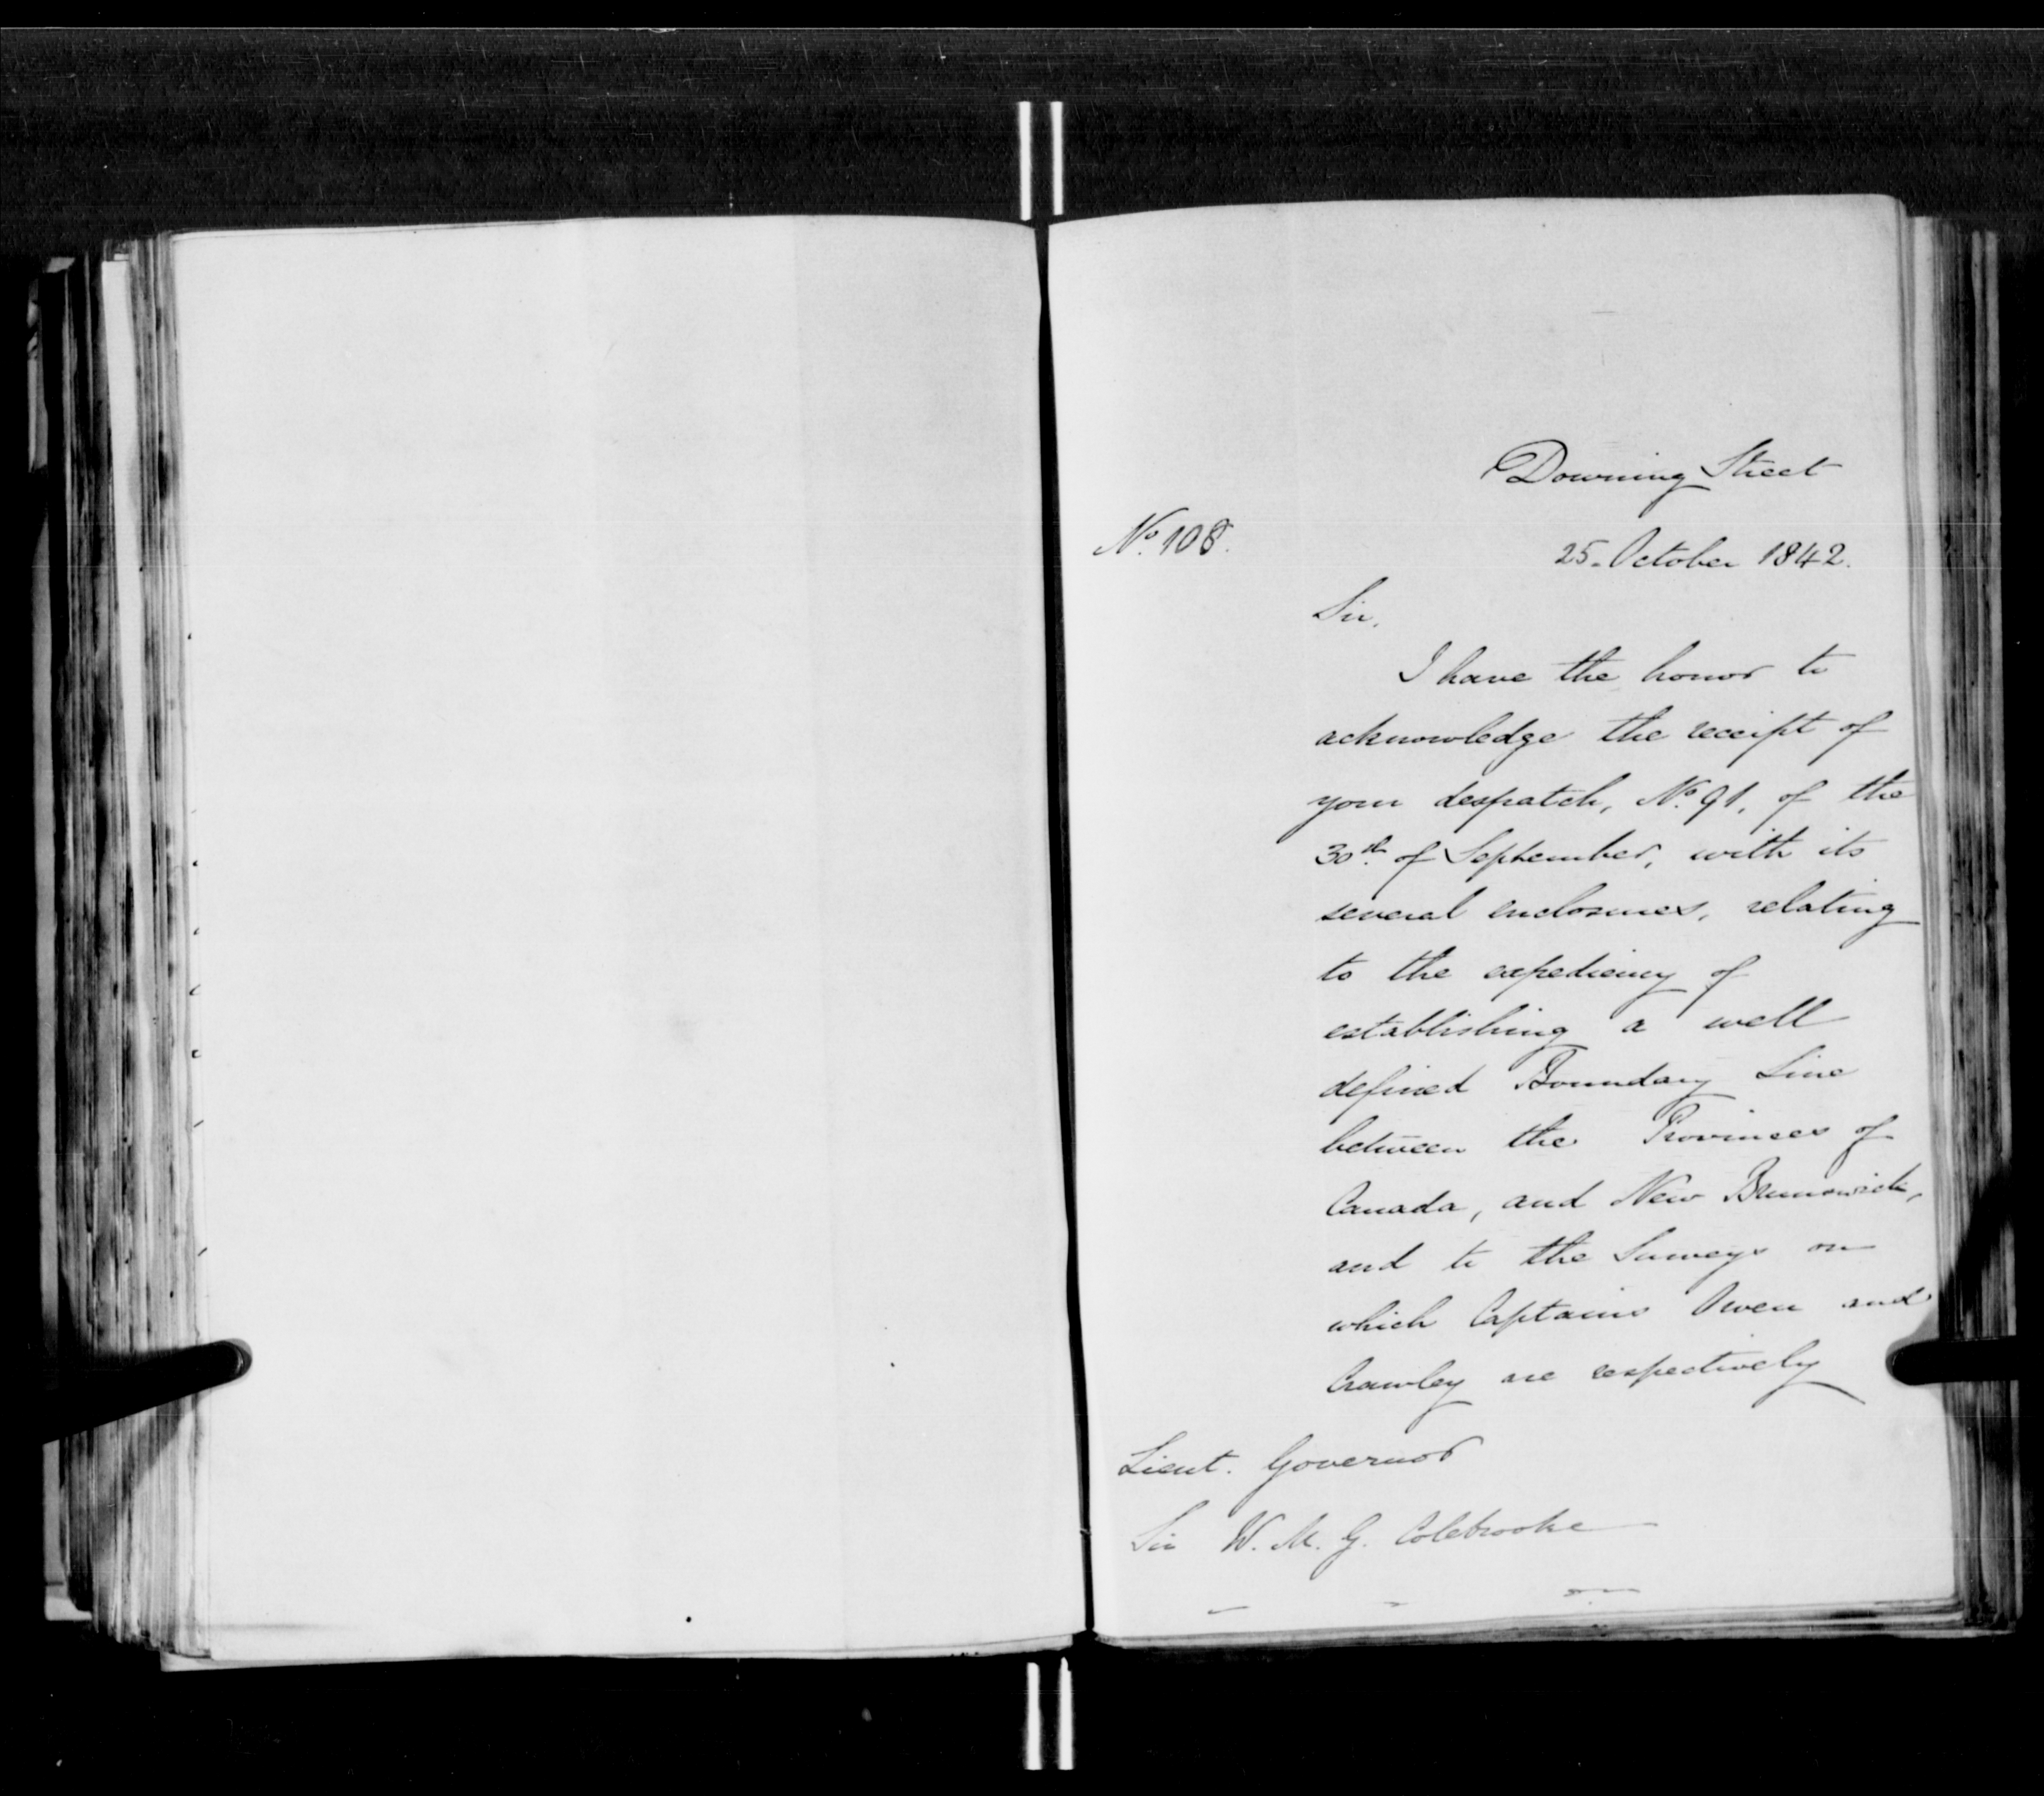 Downing Street
No. 108.
25. October 1842.
Sir,
I have the honor to
acknowledge the receipt of
your despatch, No. 91, of the
30th of September, with its
several enclosures, relating
to the expediency of
establishing a well
defined Boundary Line
between the Provinces of
Canada, and New Brunswick,
and to the Surveys on
which Captains Owen and
Crawley are respectively
Lieut. Governor
Sir W. M. G. Colebrooke